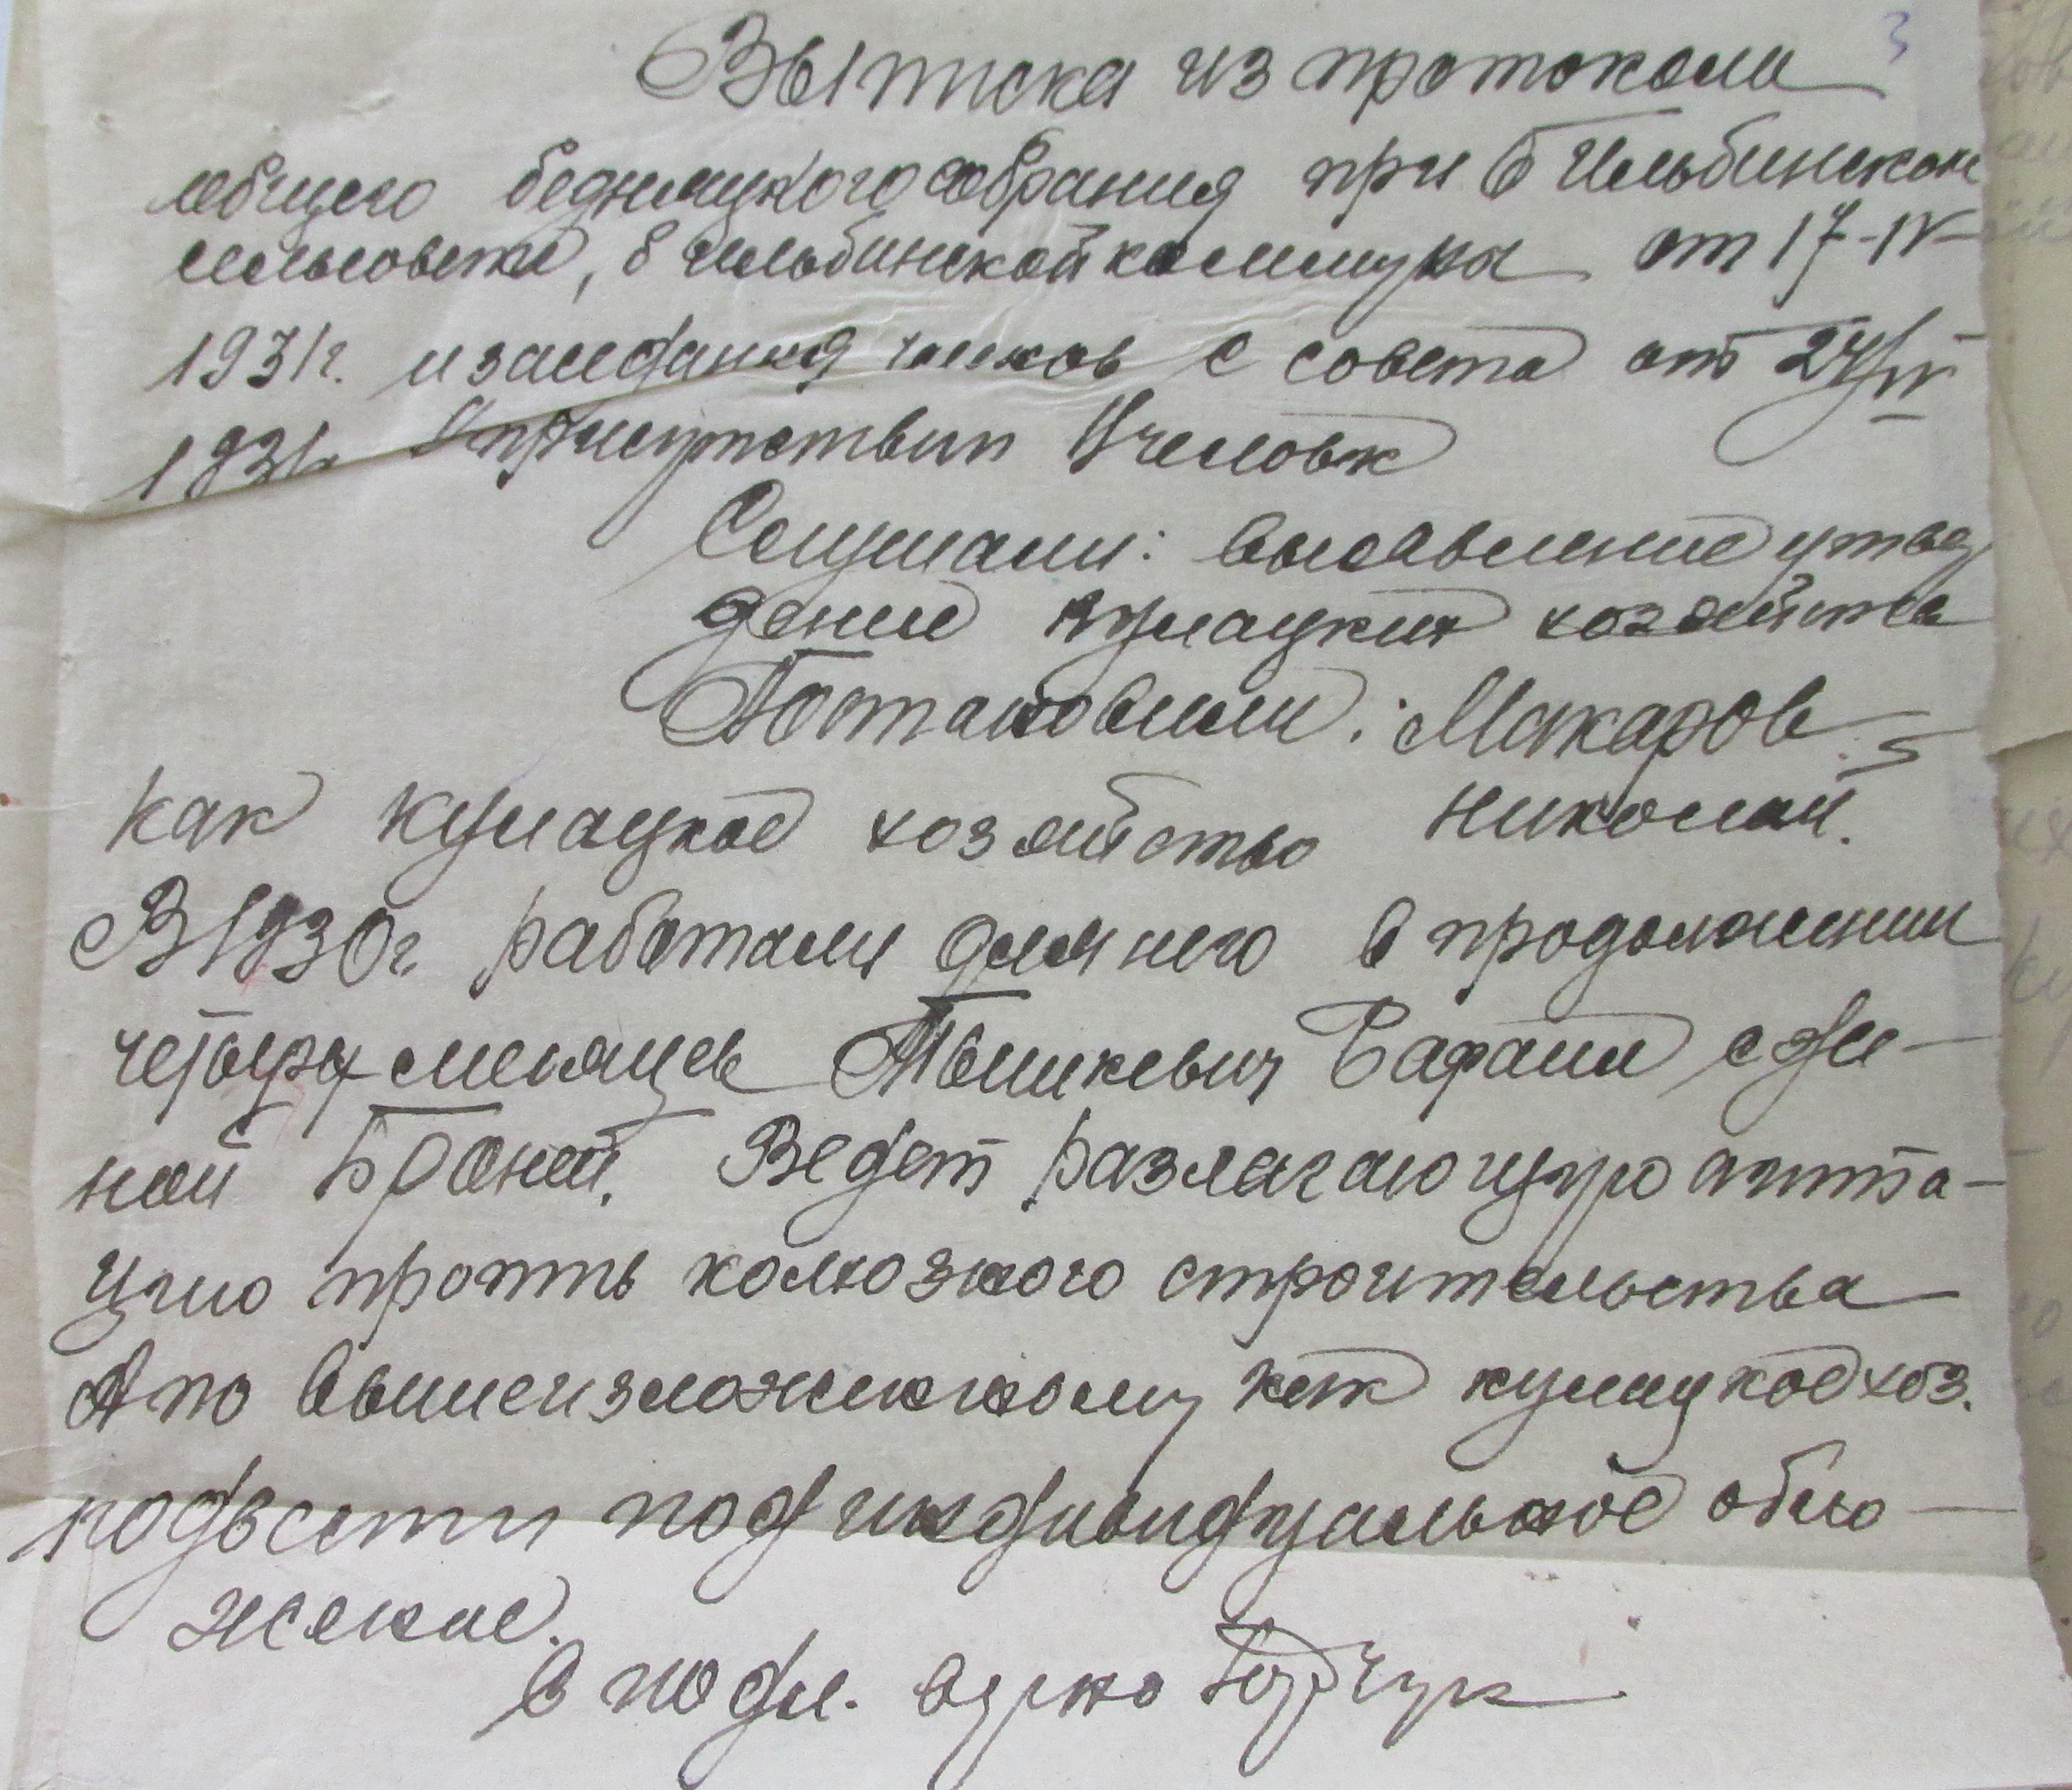 3
Выписка из протокола
общего бедняцкого собрания при Б Ильбинском
сельсовета, 8 ильбинской коммуна от 17-IV-
1931г. и заседания членов с совета от 24/IV
1931г. присутствии человек
Слушали: выявление утвер
дение кулацких хозяйств
Постановили: Макаров
как кулацкое хозяйство Николай.
В 1930г. работали для него в продолжении
четырех месяцев со же-
ной Броней. Ведет разлагающую агита-
цию против колхозного строительства
А по вышеизложенному как кулацкое хоз.
подвести под индивидуальное обло-
жение.
в подл. верно